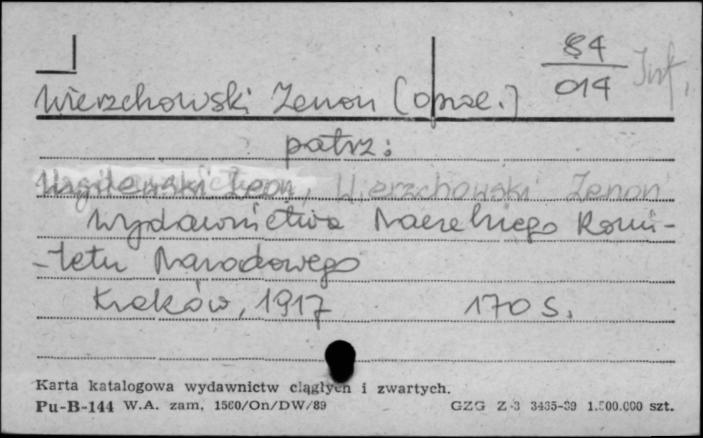 84
014
Inf.
Wierzchowski Zenon (oprac.)
patrz:
Wierzchowski Zenon
Wydawnictwa Naczelnego Komi-
-tetu Narodowego
Kraków, 1917 170 s.
Karta katalogowa wydawnictw ciągłych i zwartych.
Pu-B-144 W.A. zam. 1560/On/DW/89 GZG Z-3 3435-39 1.500.000 szt.